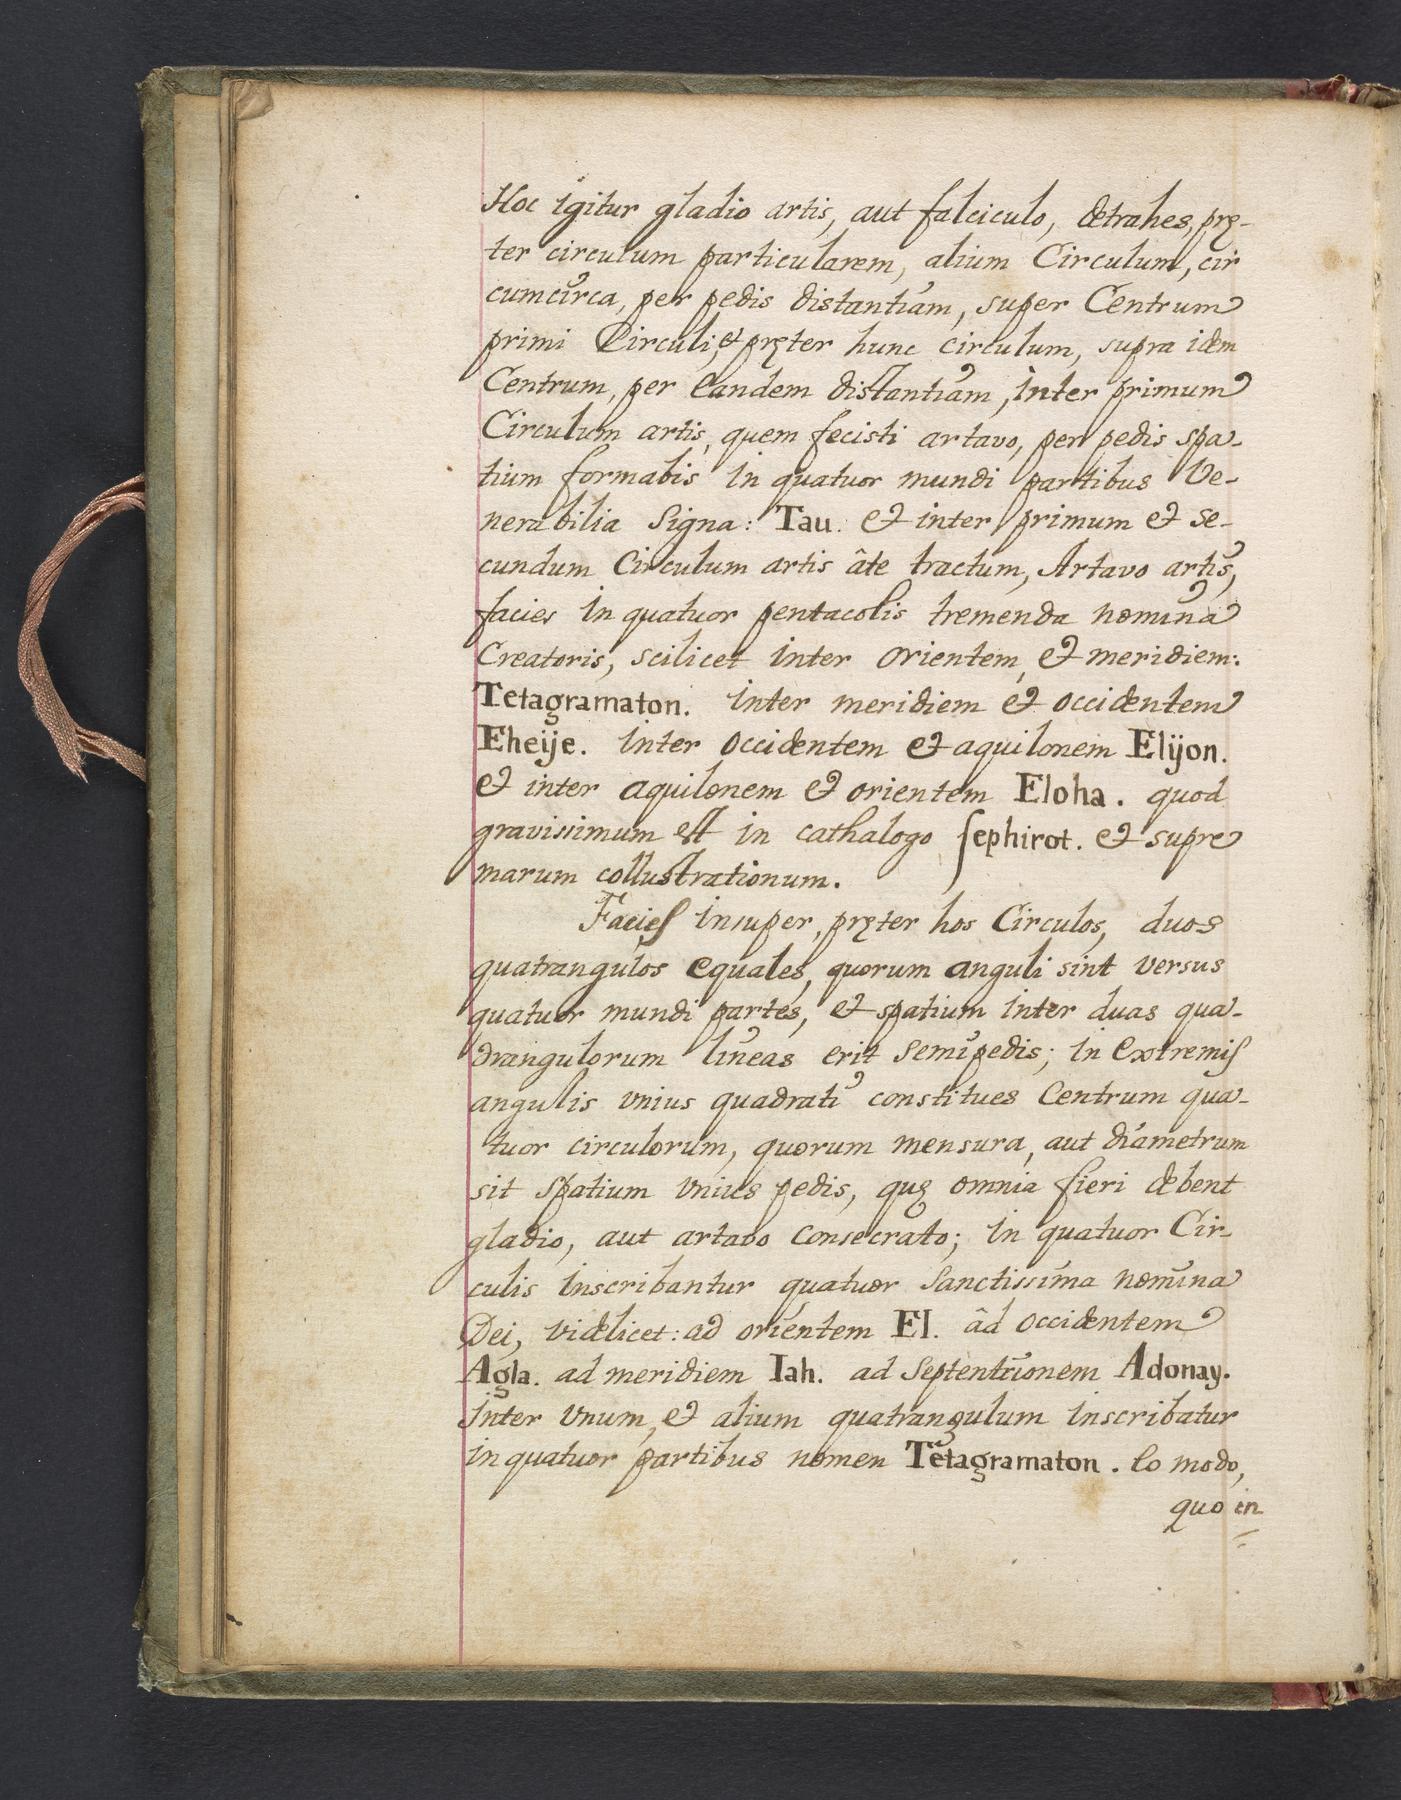 Hoc igitur gladio artis, aut falciculo, detrahes, prę-
ter circulum particularem, alium Circulum, cir
cumcirca, per pedis distantiam, super Centrum
primi Circuli, et pręter hunc circulum, supra idem
Centrum, per eandem distantiam, inter primum
Circulum artis, quem fecisti artavo, per pedis spa-
tium formabis in quatuor mundi partibus Ve-
nerabilia Signa: Tau. et inter primum et se-
cundum Circulum artis âte tractum, Artavo artis,
facies in quatuor pentacolis tremenda nomina
Creatoris, scilicet inter orientem, et meridiem:
Tetagramaton. inter meridiem et occidentem
Eheije. inter occidentem et aquilonem Elijon.
et inter aquilonem et orientem Eloha. quod
gravissimum est in cathalogo sephirot. et supre
marum collustrationum.
Facies insuper, pręter hos Circulos, duos
quatrangulos equales, quorum anguli sint versus
quatuor mundi partes, et spatium inter duas qua-
drangulorum lineas erit semipedis; in extremis
angulis vnius quadrati constitues Centrum qua-
tuor circulorum, quorum mensura, aut diametrum
sit spatium vnius pedis, quę omnia fieri debent
gladio, aut artavo consecrato; in quatuor Cir-
culis inscribantur quatuor Sanctissima nomina
Dei, videlicet: ad orientem El. âd occidentem
Agla. ad meridiem Iah. ad Septentrionem Adonay.
inter vnum, et alium quatrangulum inscribatur
in quatuor partibus nomen Tetagramaton. eo modo,
quo in